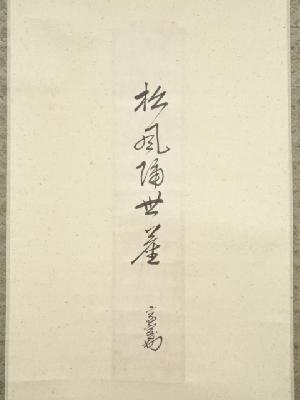 松風隔世塵